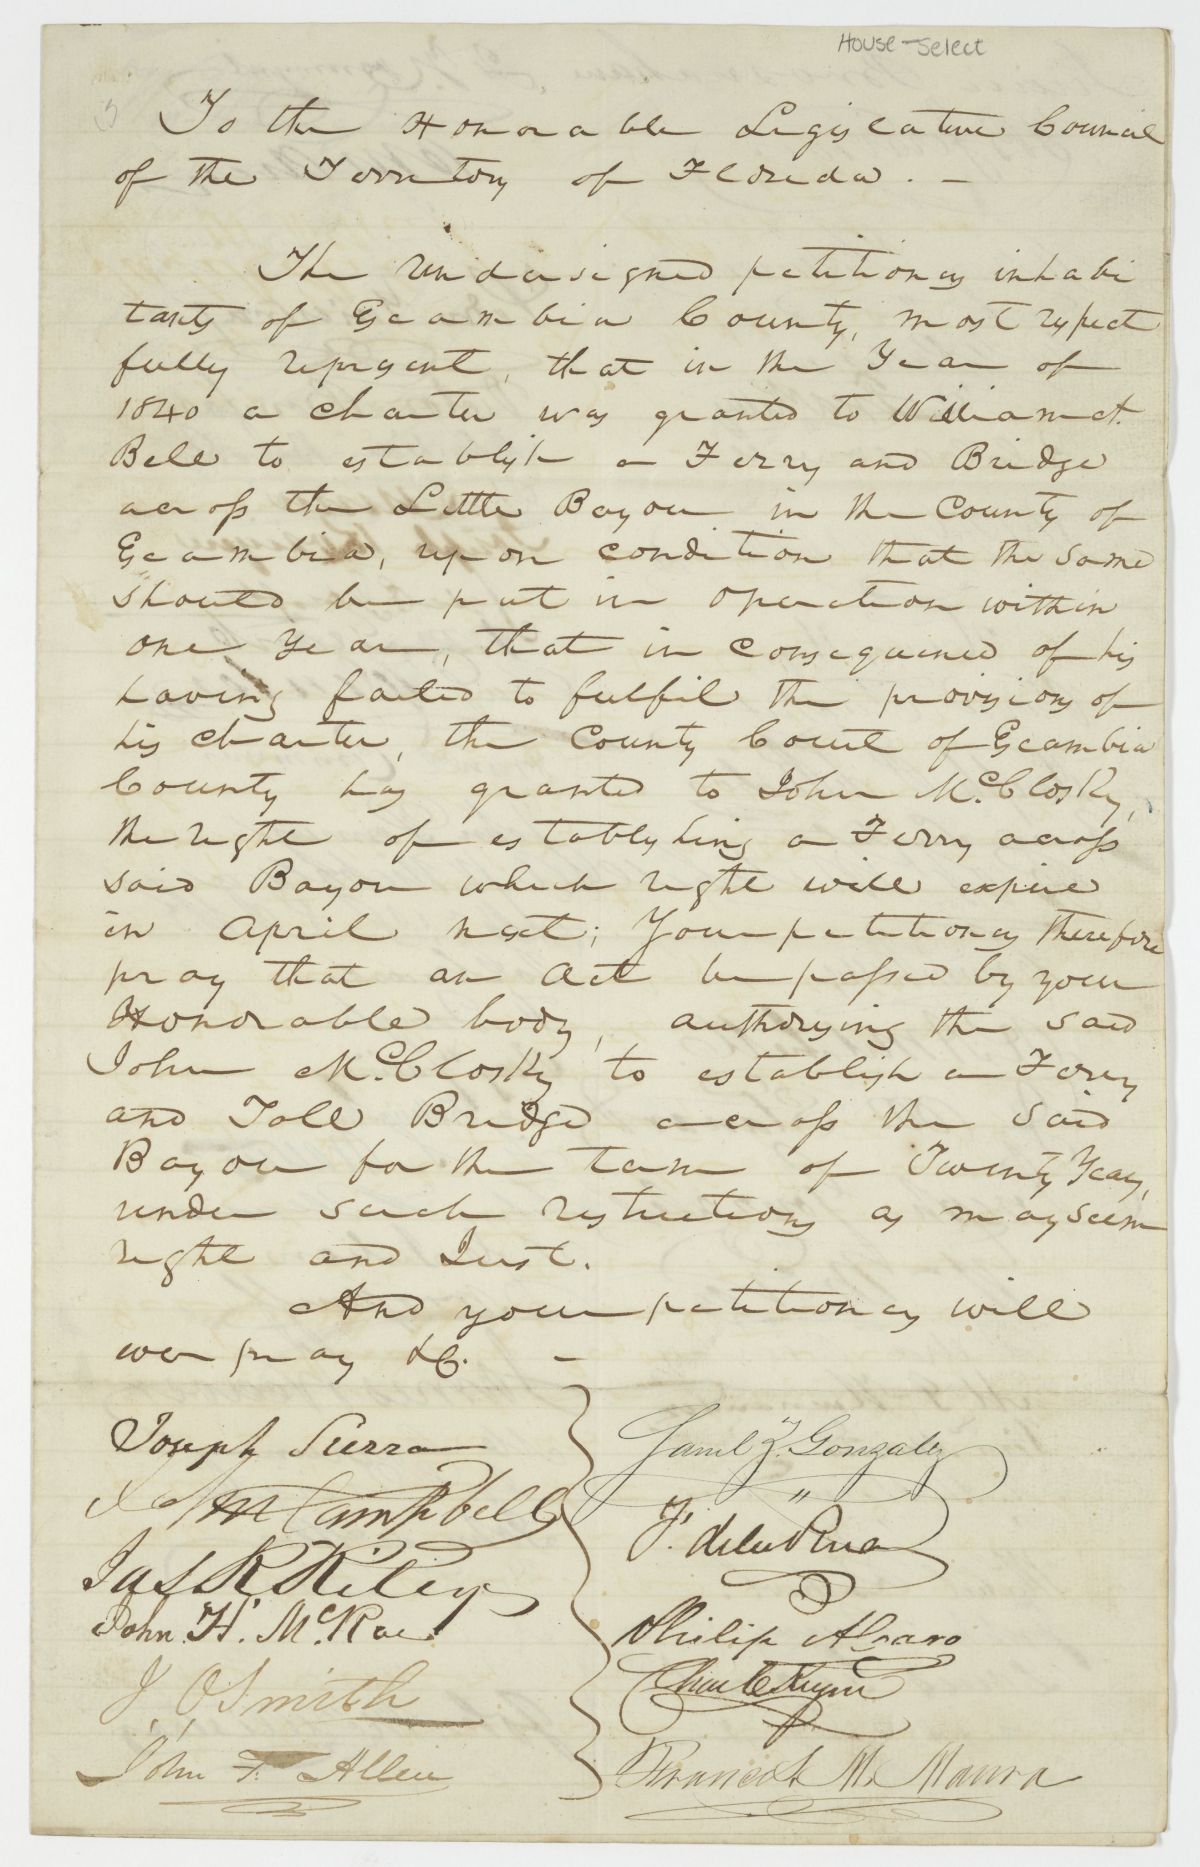 House-Select
To the Honorable Legislative Council
of the Territory of Florida. —
The undersigned petitioners inhabi
tants of Escambia County, most respect
fully represent, that in the Year of
1840 a charter was granted to William A.
Bell to establish a Ferry and Bridge
across the Little Bayou in the County of
Escambia, upon condition that the same
should be put in operation within
one Year, that in consequence of his
having failed to fulfil the provisions of
his charter, the County Court of Escambia
County has granted to John McClosky,
the right of establishing a Ferry across
said Bayou which right will expire
in April next; Your petitioners therefore
pray that an Act be passed by your
Honorable body, authorising the said
John McClosky to establish a Ferry
and Toll Bridge across the said
Bayou for the term of Twenty Years,
under such restrictions as may seem
right and Just.
And your petitioners will
ever pray &c. —
Joseph Sierra
Campbell
Jas R Riley
John. H. McRae
J. O Smith
John F. Allen
Saml Z. Gonzalez
F. de la Rua
Philip Alvaro
Charles
Francis M. Maura